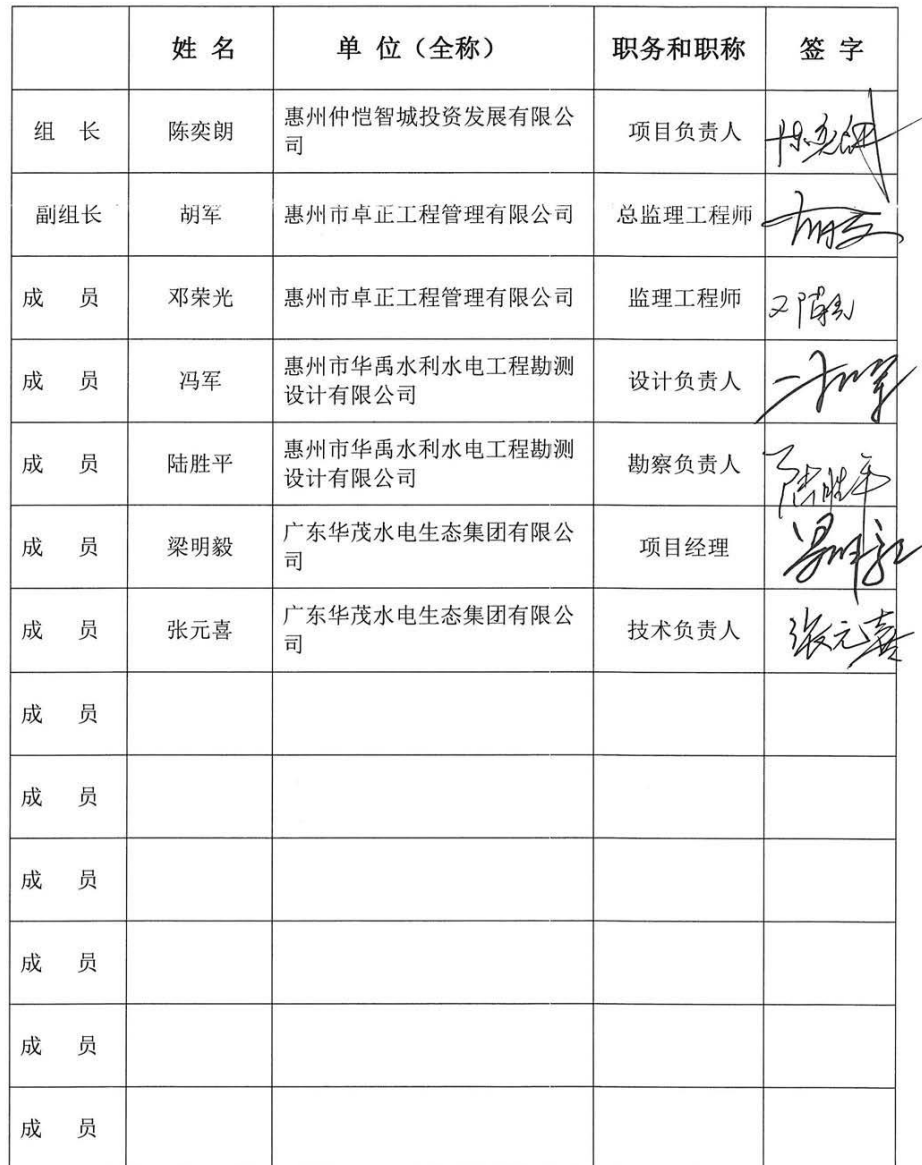 姓 名 单 位（全称） 职务和职称 签 字
组 长 陈奕朗 惠州仲恺智城投资发展有限公
司 项目负责人 陈奕朗
副组长 胡军 惠州市卓正工程管理有限公司 总监理工程师 胡军
成 员 邓荣光 惠州市卓正工程管理有限公司 监理工程师 邓荣光
成 员 冯军 惠州市华禹水利水电工程勘测
设计有限公司 设计负责人 冯军
成 员 陆胜平 惠州市华禹水利水电工程勘测
设计有限公司 勘察负责人 陆胜平
成 员 梁明毅 广东华茂水电生态集团有限公
司 项目经理 梁明毅
成 员 张元喜 广东华茂水电生态集团有限公
司 技术负责人 张元喜
成 员
成 员
成 员
成 员
成 员
成 员